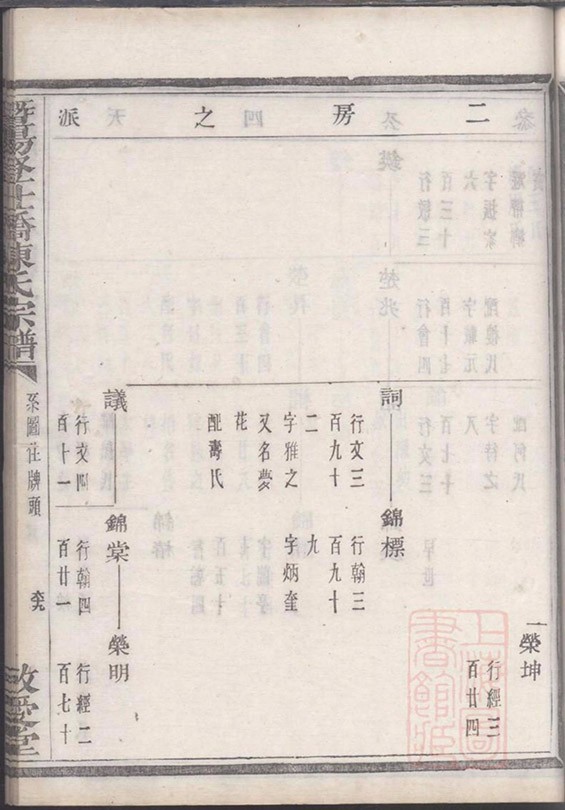 二房之派
榮坤
行經三
百廿四
詞
錦標
行文三
百九十
二
字雅之
又名夢
花
配壽氏
行翰三
百九十
九
字炳奎
議
錦棠
榮明
行文四
百十一
行翰四
百廿一
行經二
百七十
陳氏宗譜
系圖社牌頭
敬愛堂
上海圖書館藏